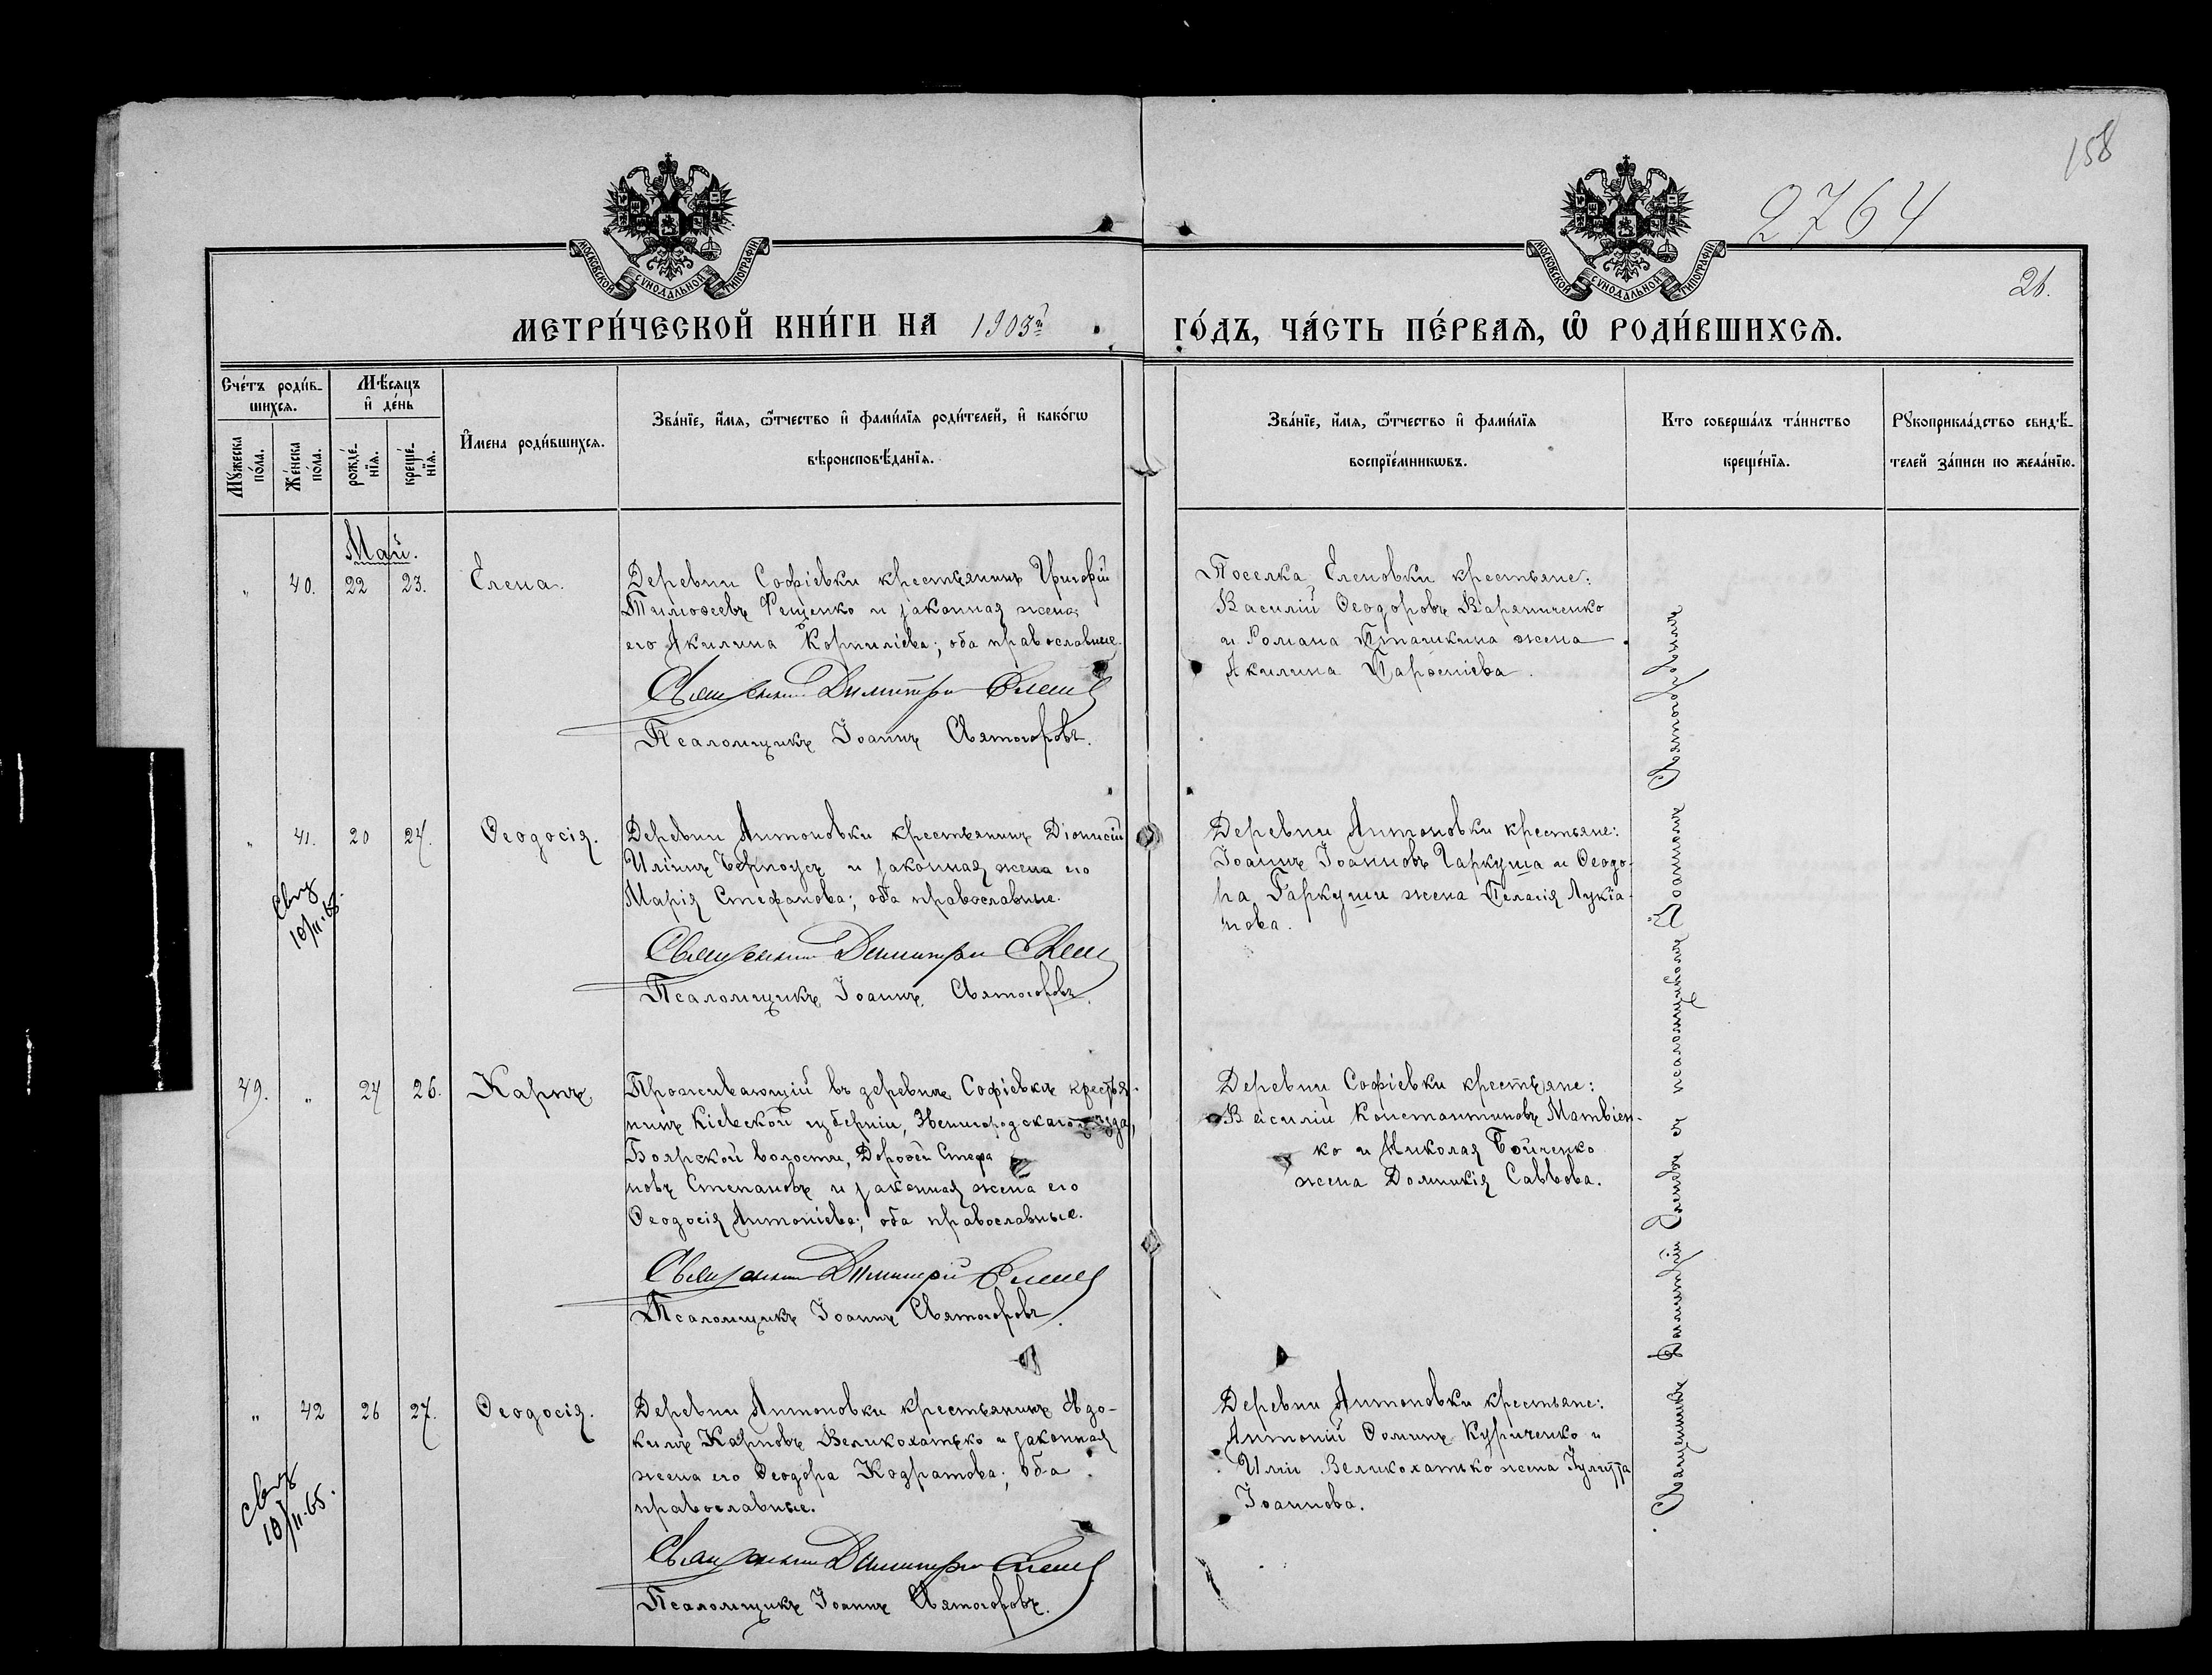 158
2764
26.
МОСКОВСКОЙ СѴНОДАЛЬНОЙ ТИПОГРАФІИ
МОСКОВСКОЙ СѴНОДАЛЬНОЙ ТИПОГРАФІИ
МЕТРИ́ЧЕСКОЙ КНИ́ГИ НА 1903й ГО́ДЪ, ЧА́СТЬ ПЕ́РВАѦ, Ѿ РОДИ́ВШИХСѦ.
Сче́тъ роди́в-
шихсѧ.
Мꙋ́жеска
по́ла.
Же́нска
по́ла.
Мѣ́сѧцъ
и҆ де́нь
рожде́-
нїѧ.
креще́-
нїѧ.
И҆мена роди́вшихсѧ.
Зва́нїе, и҆́мѧ, ѻ҆́тчество и҆ фами́лїѧ роди́телей, и҆ како́гѡ
вѣроисповѣ́данїѧ.
Зва́нїе, и҆́мѧ, ѻ҆́тчество и҆ фами́лїѧ
воспрїе́мникѡвъ.
Кто соверша́лъ та́инство
креще́нїѧ.
Рꙋкоприкла́дство свидѣ́-
телей за́писи по жела́нїю.
Май.
" 40. 22 23. Елена.
Деревни Софіевки крестьянинъ Григорій
Тимоѳеевъ Фещенко и законная жена
его Акилина Корниліева; оба православные.
Священникъ Димитрій
Псаломщикъ Іоаннъ Святогоровъ.
Поселка Еленовки крестьяне:
Василій Ѳеодоровъ Варениченко
и Романа Пташкина жена
Акилина Парѳеніева.
" 41. 20 24. Ѳеодосія.
Деревни Антоновки крестьянинъ Діонисій
Иліинъ Черноусъ и законная жена его
Марія Стефанова; оба православные.
Священникъ Димитрій
Псаломщикъ Іоаннъ Святогоровъ.
Деревни Антоновки крестьяне:
Іоаннъ Іоанновъ Гаркуша и Ѳеодо-
ра Гаркуши жена Пелагія Лукіа-
нова.
свид
10/II-65.
49. " 24 26. Карпъ
Проживающій въ деревнѣ Софіевкѣ крестья-
нинъ Кіевской губерніи, Звенигородскаго уѣзда,
Боярской волости, Дороѳей Стефа
новъ Степановъ и законная жена его
Ѳеодосія Антоніева; оба православные.
Священникъ Димитрій
Псаломщикъ Іоаннъ Святогоровъ.
Деревни Софіевки крестьяне:
Василій Константиновъ Матвіен-
ко и Николая Бойченко
жена Домникія Саввова.
" 42 26 27. Ѳеодосія.
Деревни Антоновки крестьянинъ Євдо-
кимъ Карповъ Великохатько и законная
жена его Ѳеодора Кодратова; оба
православные.
Священникъ Димитрій
Псаломщикъ Іоаннъ Святогоровъ.
Деревни Антоновки крестьяне:
Антоній Ѳоминъ Куриченко и
Иліи Великохатько жена Іулитта
Іоаннова.
свид
10/II-65.
Священникъ Димитрій съ псаломщикомъ Іоанномъ Святогоровымъ